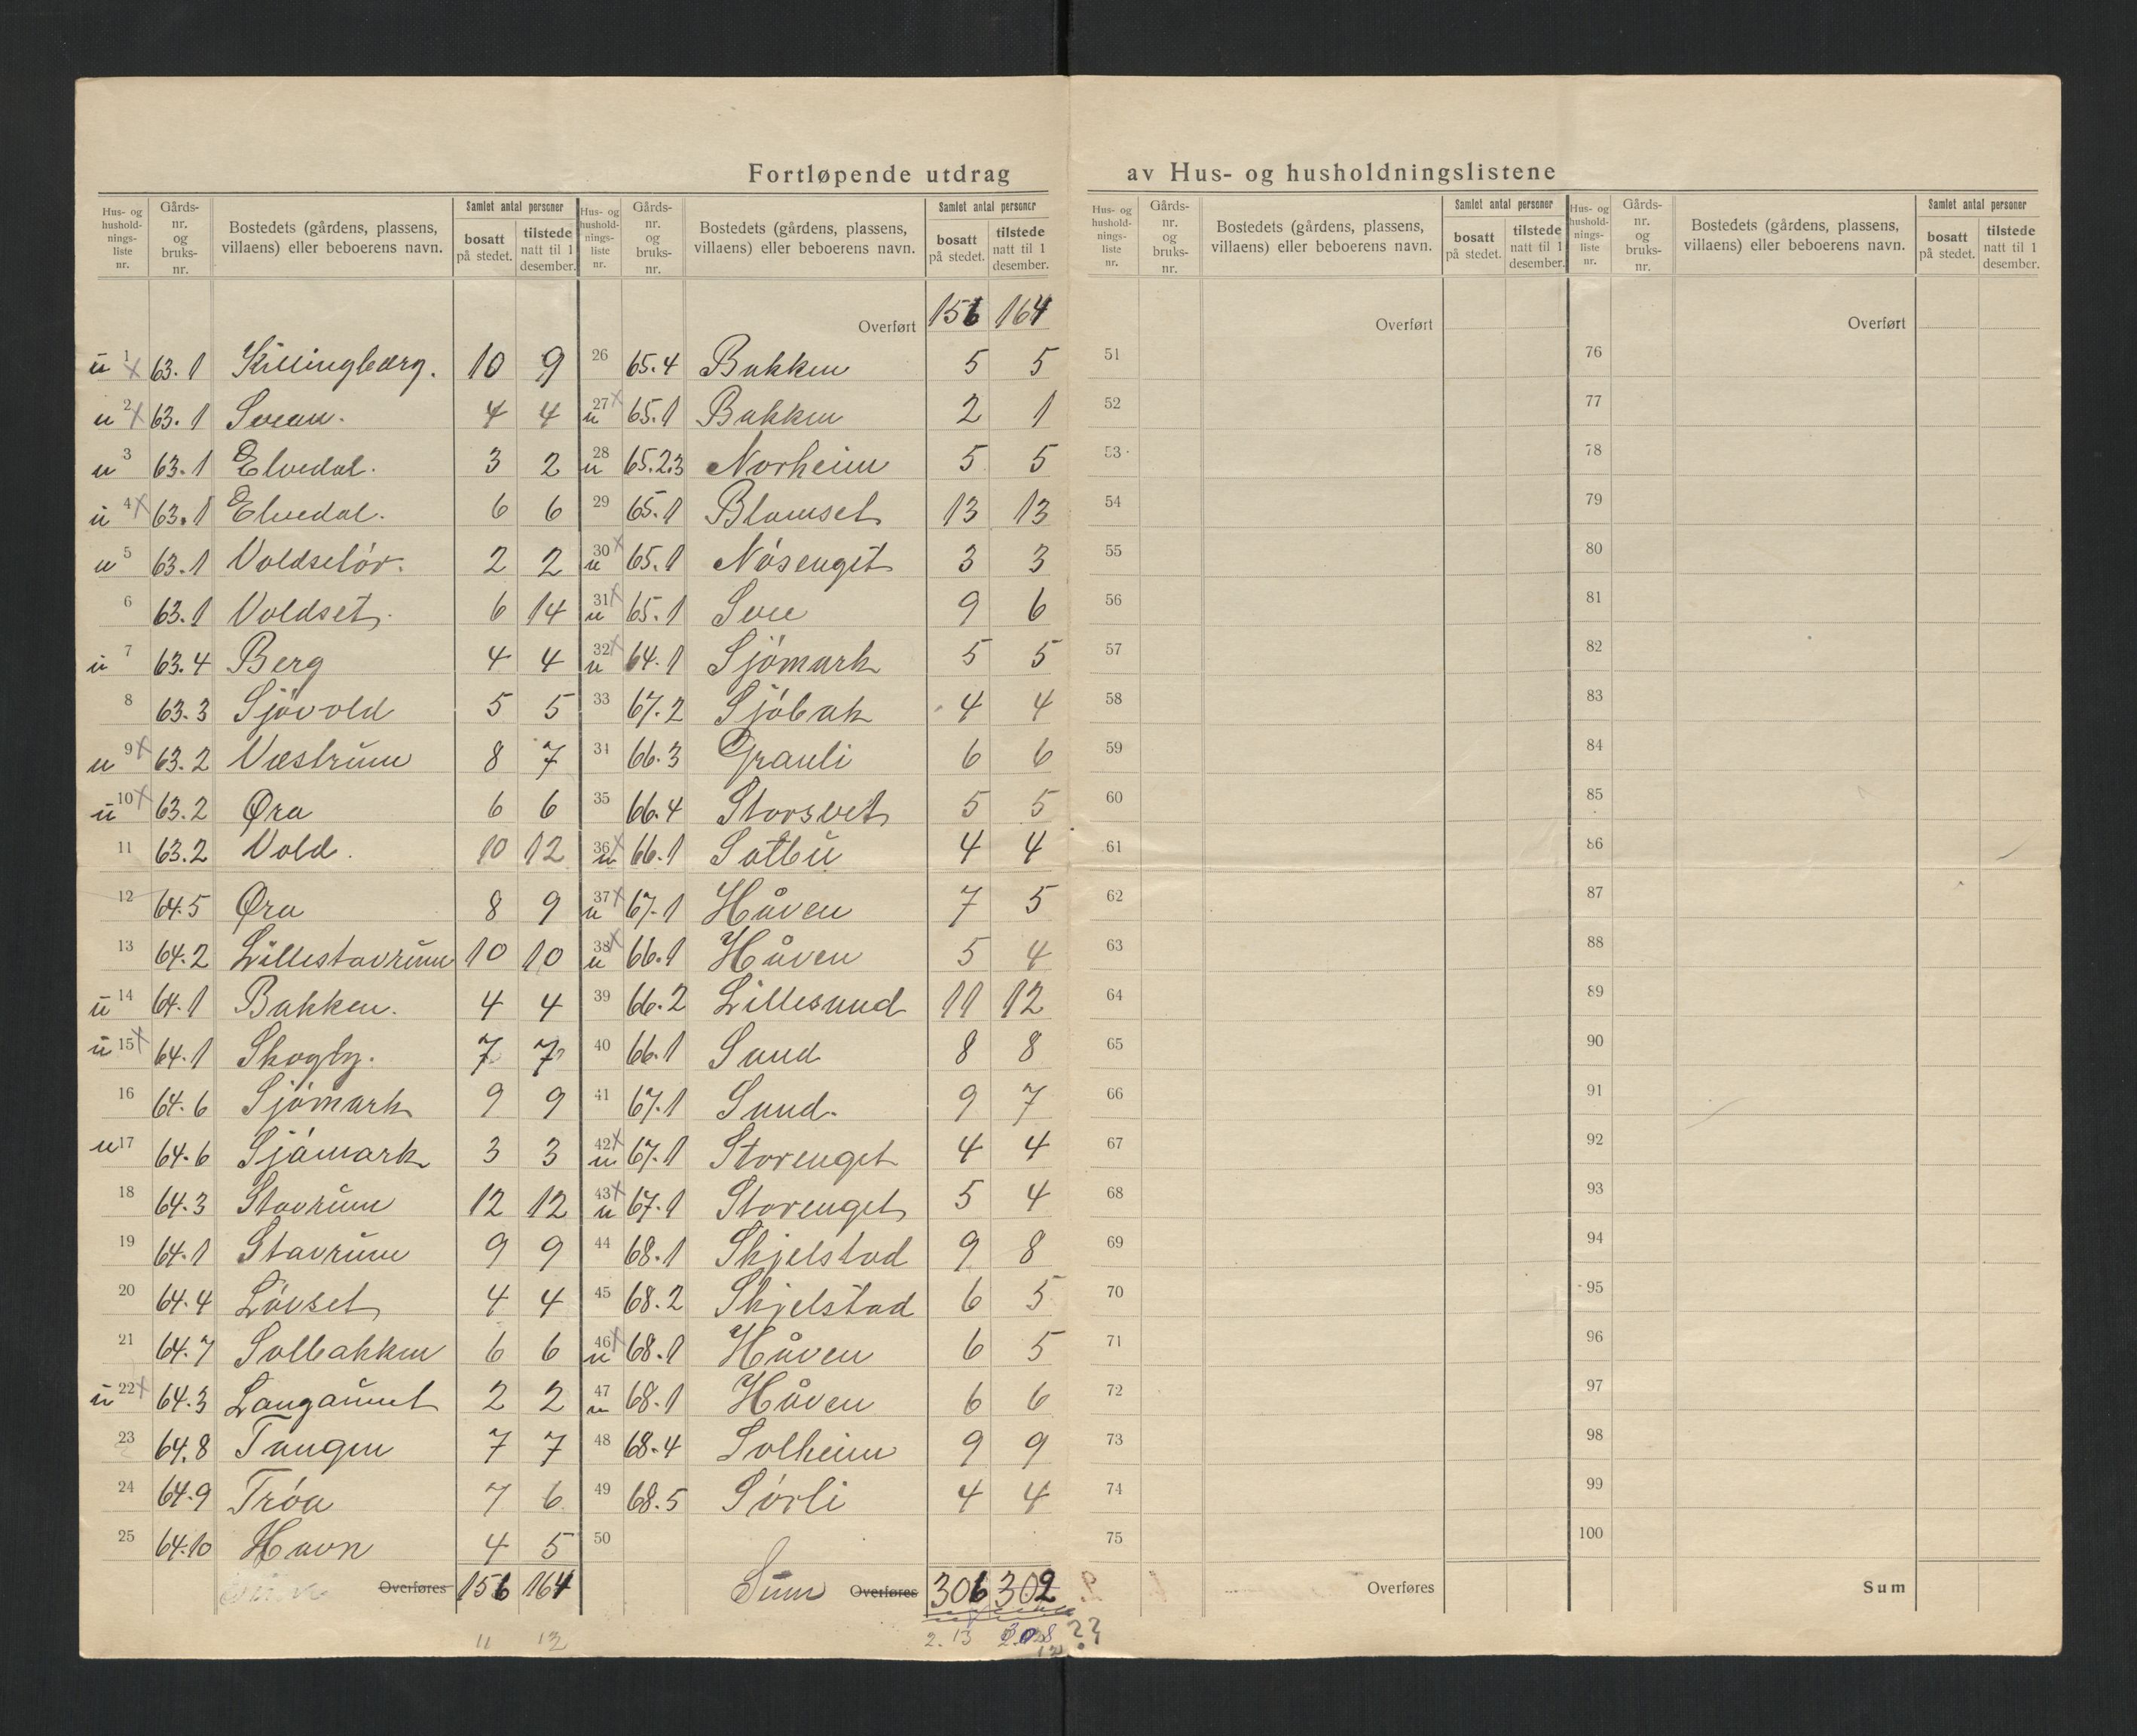 Fortløpende utdrag av Hus- og husholdningslistene
Hus- og husholdnings-liste nr. Gårds-nr. og bruks-nr. Bostedets (gårdens, plassens, villaens) eller beboerens navn. Samlet antal personer bosatt på stedet. tilstede natt til 1 desember.
Hus- og husholdnings-liste nr. Gårds-nr. og bruks-nr. Bostedets (gårdens, plassens, villaens) eller beboerens navn. Samlet antal personer bosatt på stedet. tilstede natt til 1 desember.
Hus- og husholdnings-liste nr. Gårds-nr. og bruks-nr. Bostedets (gårdens, plassens, villaens) eller beboerens navn. Samlet antal personer bosatt på stedet. tilstede natt til 1 desember.
Hus- og husholdnings-liste nr. Gårds-nr. og bruks-nr. Bostedets (gårdens, plassens, villaens) eller beboerens navn. Samlet antal personer bosatt på stedet. tilstede natt til 1 desember.
u 1 x 63.1 Killingberg. 10 9
u 2 x 63.1 Svean. 4 4
u 3 63.1 Elvedal. 3 2
u 4 x 63.1 Elvedal. 6 6
u 5 63.1 Voldseter. 2 2
6 63.1 Voldset. 6 14
u 7 63.4 Berg 4 4
8 63.3 Sjövold 5 5
u 9 x 63.2 Vestrum 8 7
u 10 x 63.2 Øra 6 6
11 63.2 Vold. 10 12
12 64.5 Øra 8 9
13 64.2 Lillestavrum 10 10
u 14 64.1 Bakken. 4 4
u 15 x 64.1 Skogly. 7 7
16 64.6 Sjömark 9 9
u 17 64.6 Sjömark 3 3
18 64.3 Stavrum 12 12
19 64.1 Stavrum 9 9
20 64.4 Lövset 4 4
21 64.7 Solbakken 6 6
u 22 x 64.3 Langaunet 2 2
23 64.8 Tangen 7 7
24 64.9 Tröa 7 6
25 64.10 Havn 4 5
Overføres 156 164
11 12
Overført 156 164
26 65.4 Bakken 5 5
u 27 x 65.1 Bakken 2 1
u 28 65.2.3 Norheim 5 5
29 65.1 Blomset 13 13
u 30 x 65.1 Nösenget 3 3
u 31 x 65.1 Sve 9 6
u 32 x 64.1 Sjömark 5 5
33 67.2 Sjöbak 4 4
34 66.3 Granli 6 6
35 66.4 Storsvet 5 5
u 36 x 66.1 Solbu 4 4
u 37 x 67.1 Håven 7 5
u 38 x 66.1 Håven 5 4
39 66.2 Lillesund 11 12
40 66.1 Sund 8 8
41 67.1 Sund. 9 7
u 42 x 67.1 Storenget 4 4
u 43 x 67.1 Storenget 5 4
44 68.1 Skjelstad 9 8
45 68.2 Skjelstad 6 5
u 46 x 68.1 Håven 6 5
u 47 68.1 Håven 6 6
48 68.4 Solheim 9 9
49 68.5 Sörli 4 4
50
Sum Overføres 306 302
2. 13
Overført
51
52
53
54
55
56
57
58
59
60
61
62
63
64
65
66
67
68
69
70
71
72
73
74
75
Overføres
Overført
76
77
78
79
80
81
82
83
84
85
86
87
88
89
90
91
92
93
94
95
96
97
98
99
100
Sum